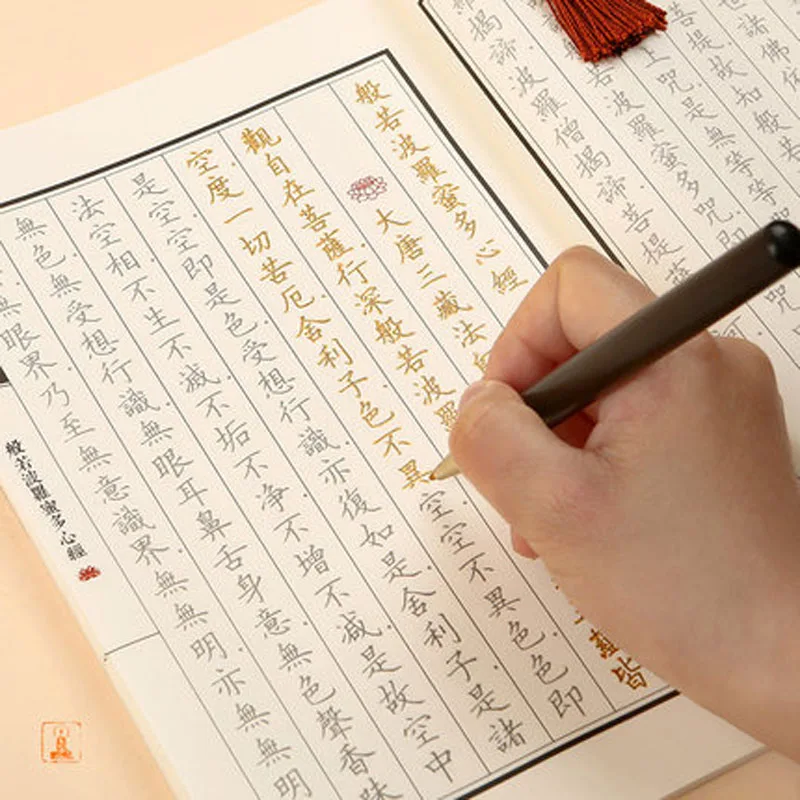 世諸佛依
菩提.故知般若
上咒.是無等等
若波羅蜜多咒.即
羅揭諦.波羅僧揭諦.菩提薩
般若波羅蜜多心經
大唐三藏法
觀自在菩薩.行深般若波羅
蘊皆
空.度一切苦厄.舍利子.色不異空.空不異色.色即
是空.空即是色.受想行識.亦復如是.舍利子.是諸
法空相.不生不减.不垢不净.不增不减.是故空中
無色.無受想行識.無眼耳鼻舌身意.無色聲香味
無眼界.乃至無意識界.無無明.亦無無明
般若波羅蜜多心經